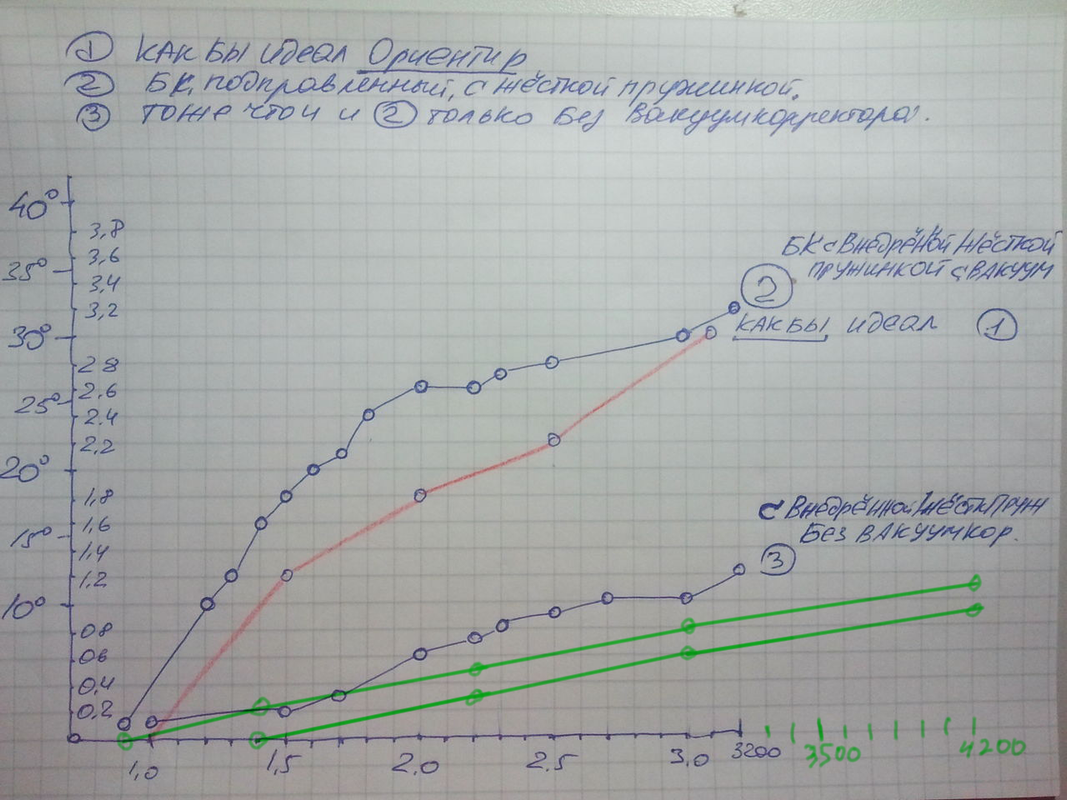 ① КАК БЫ идеал Ориентир
② БК, подправленный, с жёсткой пружинкой.
③ тоже что и ② только без вакуумкорректора.
40°
3,8
3,6
35°
3,4
3,2
30°
2 8
2,6
25°
2,4
2,2
20°
1,8
1,6
15°
1,4
1,2
10°
0 8
0 6
0,4
0,2
БК с Внедрёной жёсткой
пружинкой с ВАКУУМ
②
КАК БЫ идеал ①
с Внедрённой жёстк Пруж
Без ВАКУУМКОР.
③
1,0 1,5 2.0 2.5 3.0 3200 3500 4200